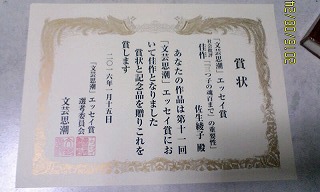 賞状
「文芸思潮」エッセイ賞
社会批評
佳作「「三つ子の魂百まで」の重要性」
佐生綾子 殿
あなたの作品は第十一回
「文芸思潮」エッセイ賞にお
いて佳作となりました
賞状と記念品を贈りこれを
賞します
二〇一六年一月十五日
「文芸思潮」エッセイ賞
選考委員会
文芸思潮